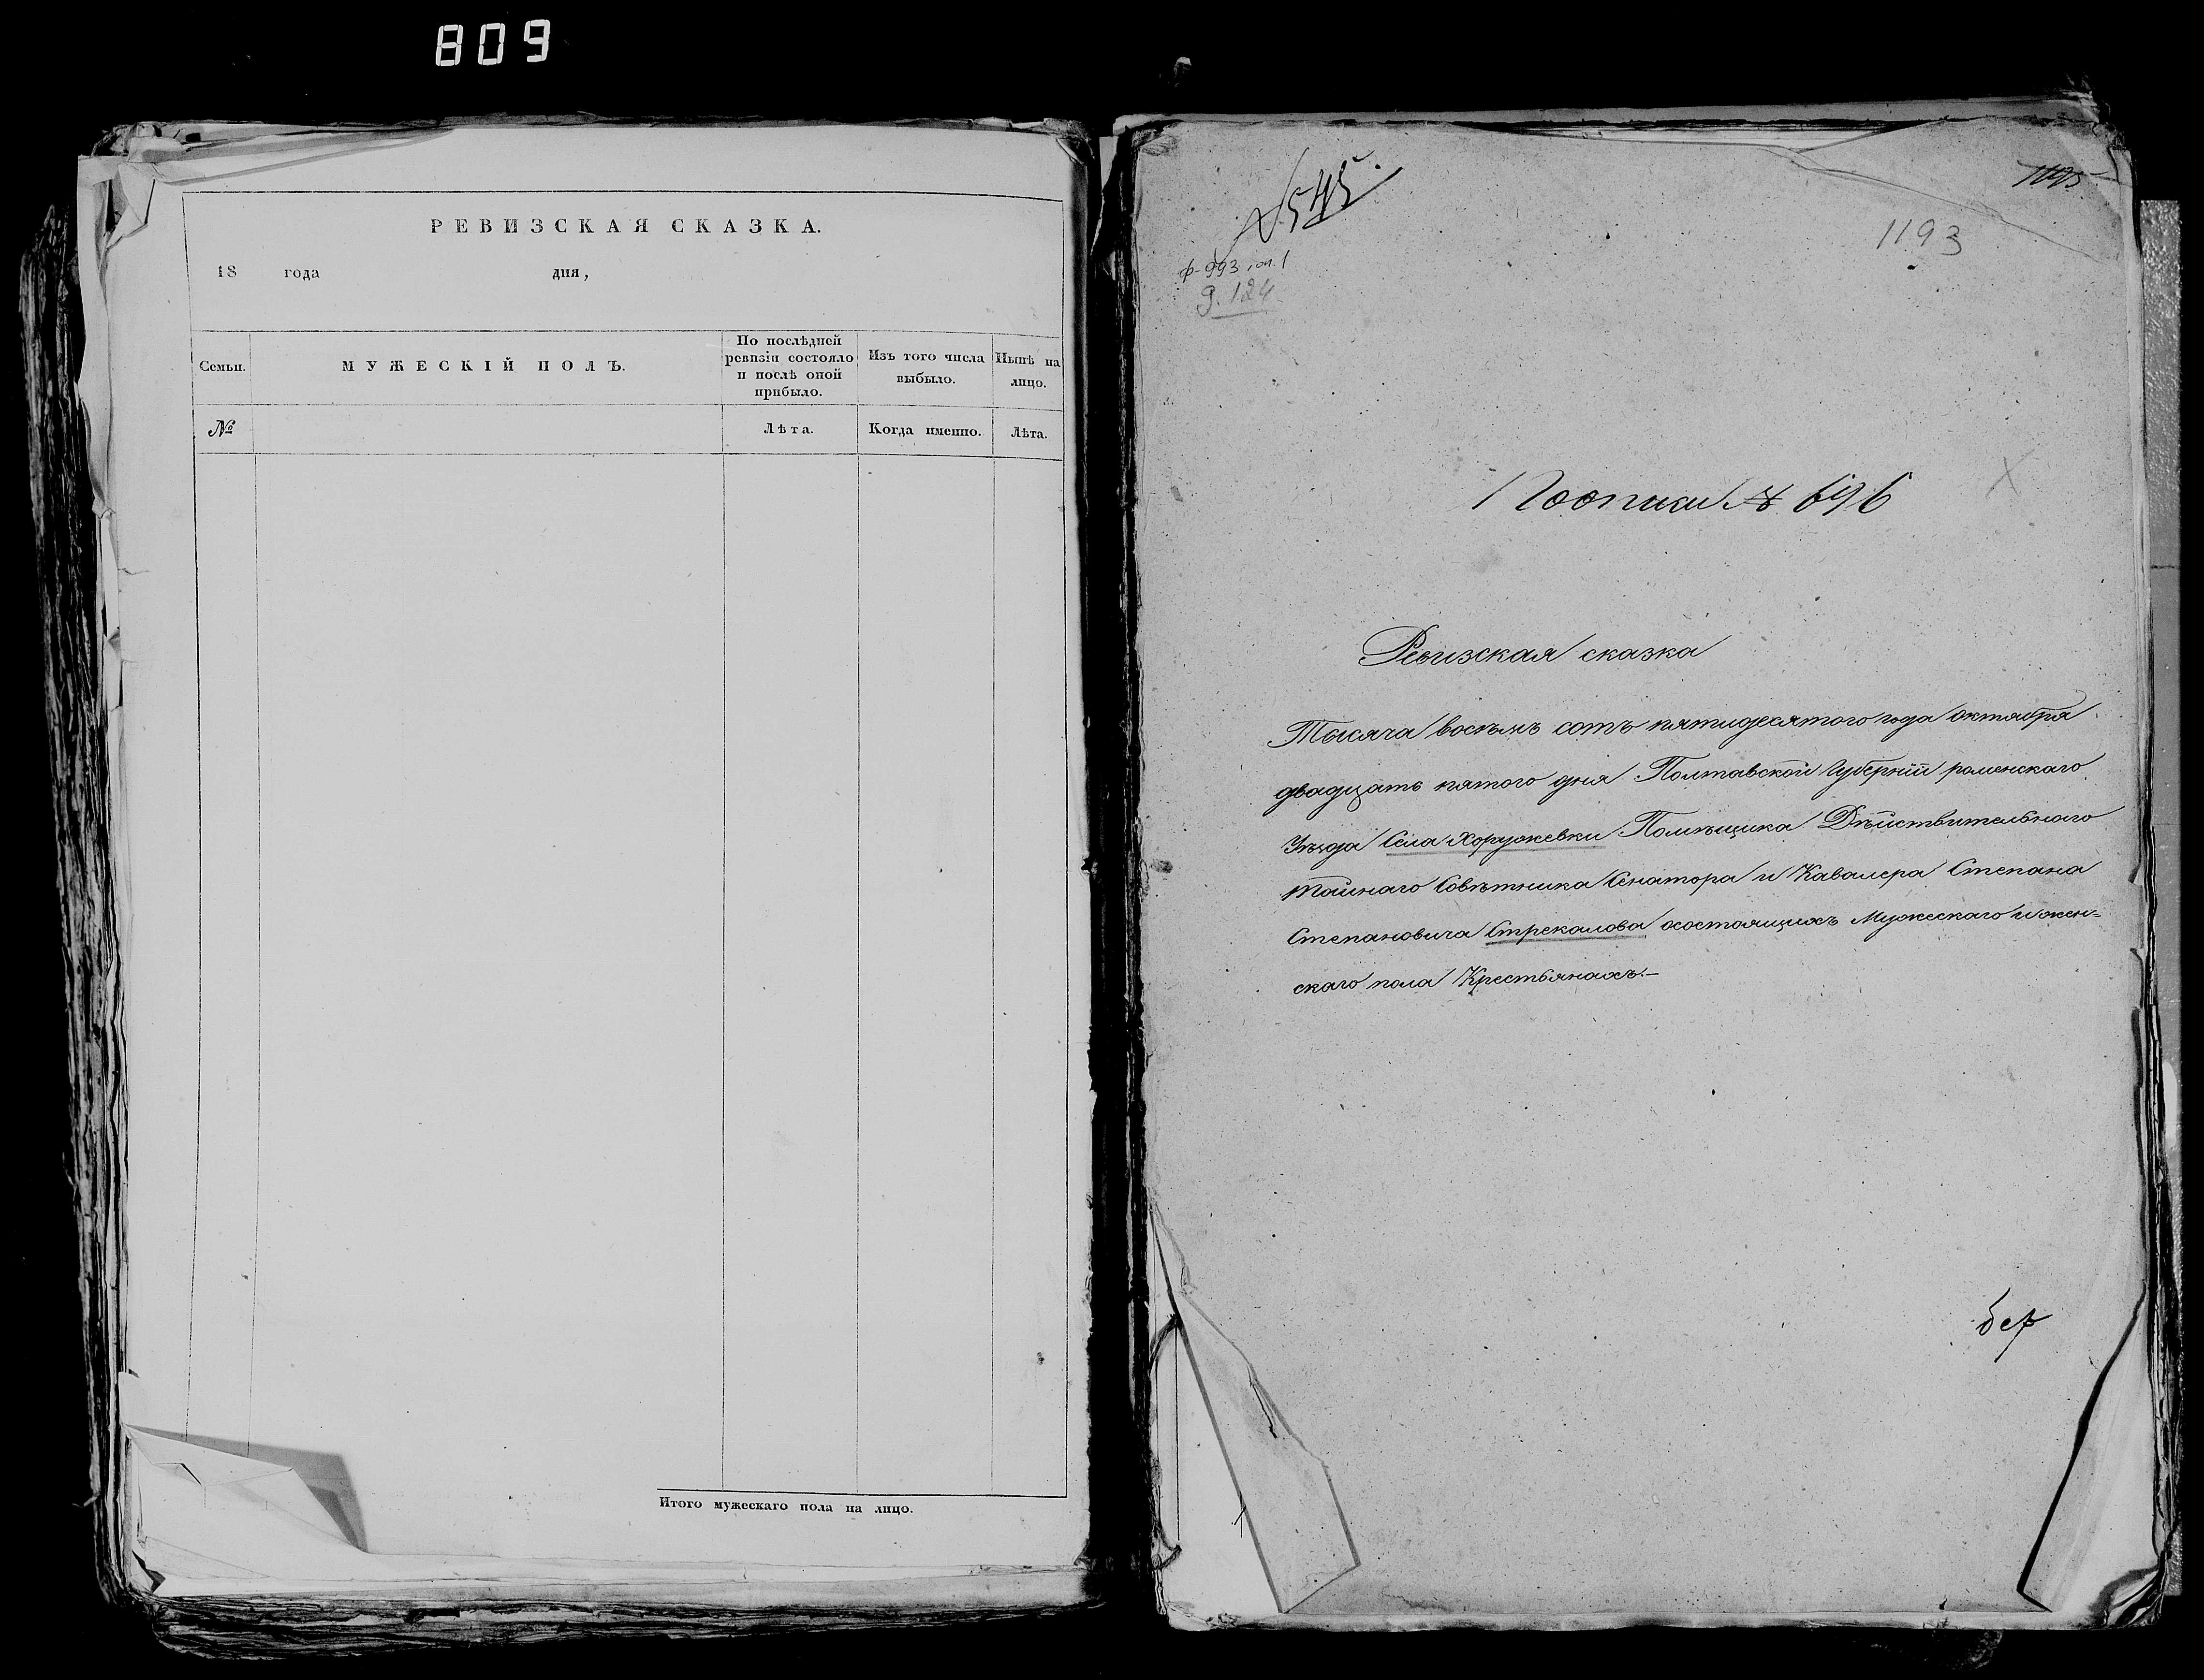 809
РЕВИЗСКАЯ СКАЗКА.
18 года дня,
Семьи.
МУЖЕСКІЙ ПОЛЪ.
По послѣдней
ревизіи состояло
и послѣ оной
прибыло.
Изъ того числа
выбыло.
Нынѣ на
лицо.
№
Лѣта.
Когда именно.
Лѣта.
Итого мужескаго пола на лицо.
№ 545.
ф-993, оп. 1
д. 124
1193
По описи № 696
Ревизская сказка
Тысяча восемь сотъ пятидесятого года октября
двадцать пятого дня Полтавской Губерніи роменскаго
Уѣзда Села Хоружевки Помѣщика Дѣйствительнаго
тайнаго Совѣтника Сенатора и Кавалера Степана
Степановича Стрекалова осостоящихъ Мужескаго и жен=
скаго пола Крестьянахъ.—